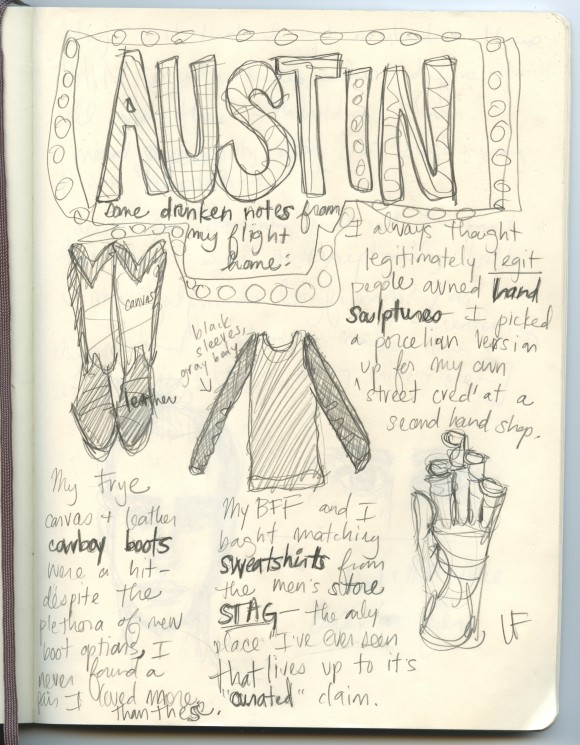 AUSTIN
some drunken notes from
my flight
home:
I always thought
legitimately legit
people owned hand
sculptures - I picked
a porcelian version
up for my own
'street cred' at a
second hand shop.
canvas
leather
black
sleeves,
gray body
My Frye
canvas + leather
cowboy boots
were a hit -
despite the
plethora of new
boot options, I
never found a
pair I loved more
than these.
My BFF and I
baght matching
sweatshirts from
the men's store
STAG - the only
place I've ever seen
that lives up to it's
"curated" claim.
LF